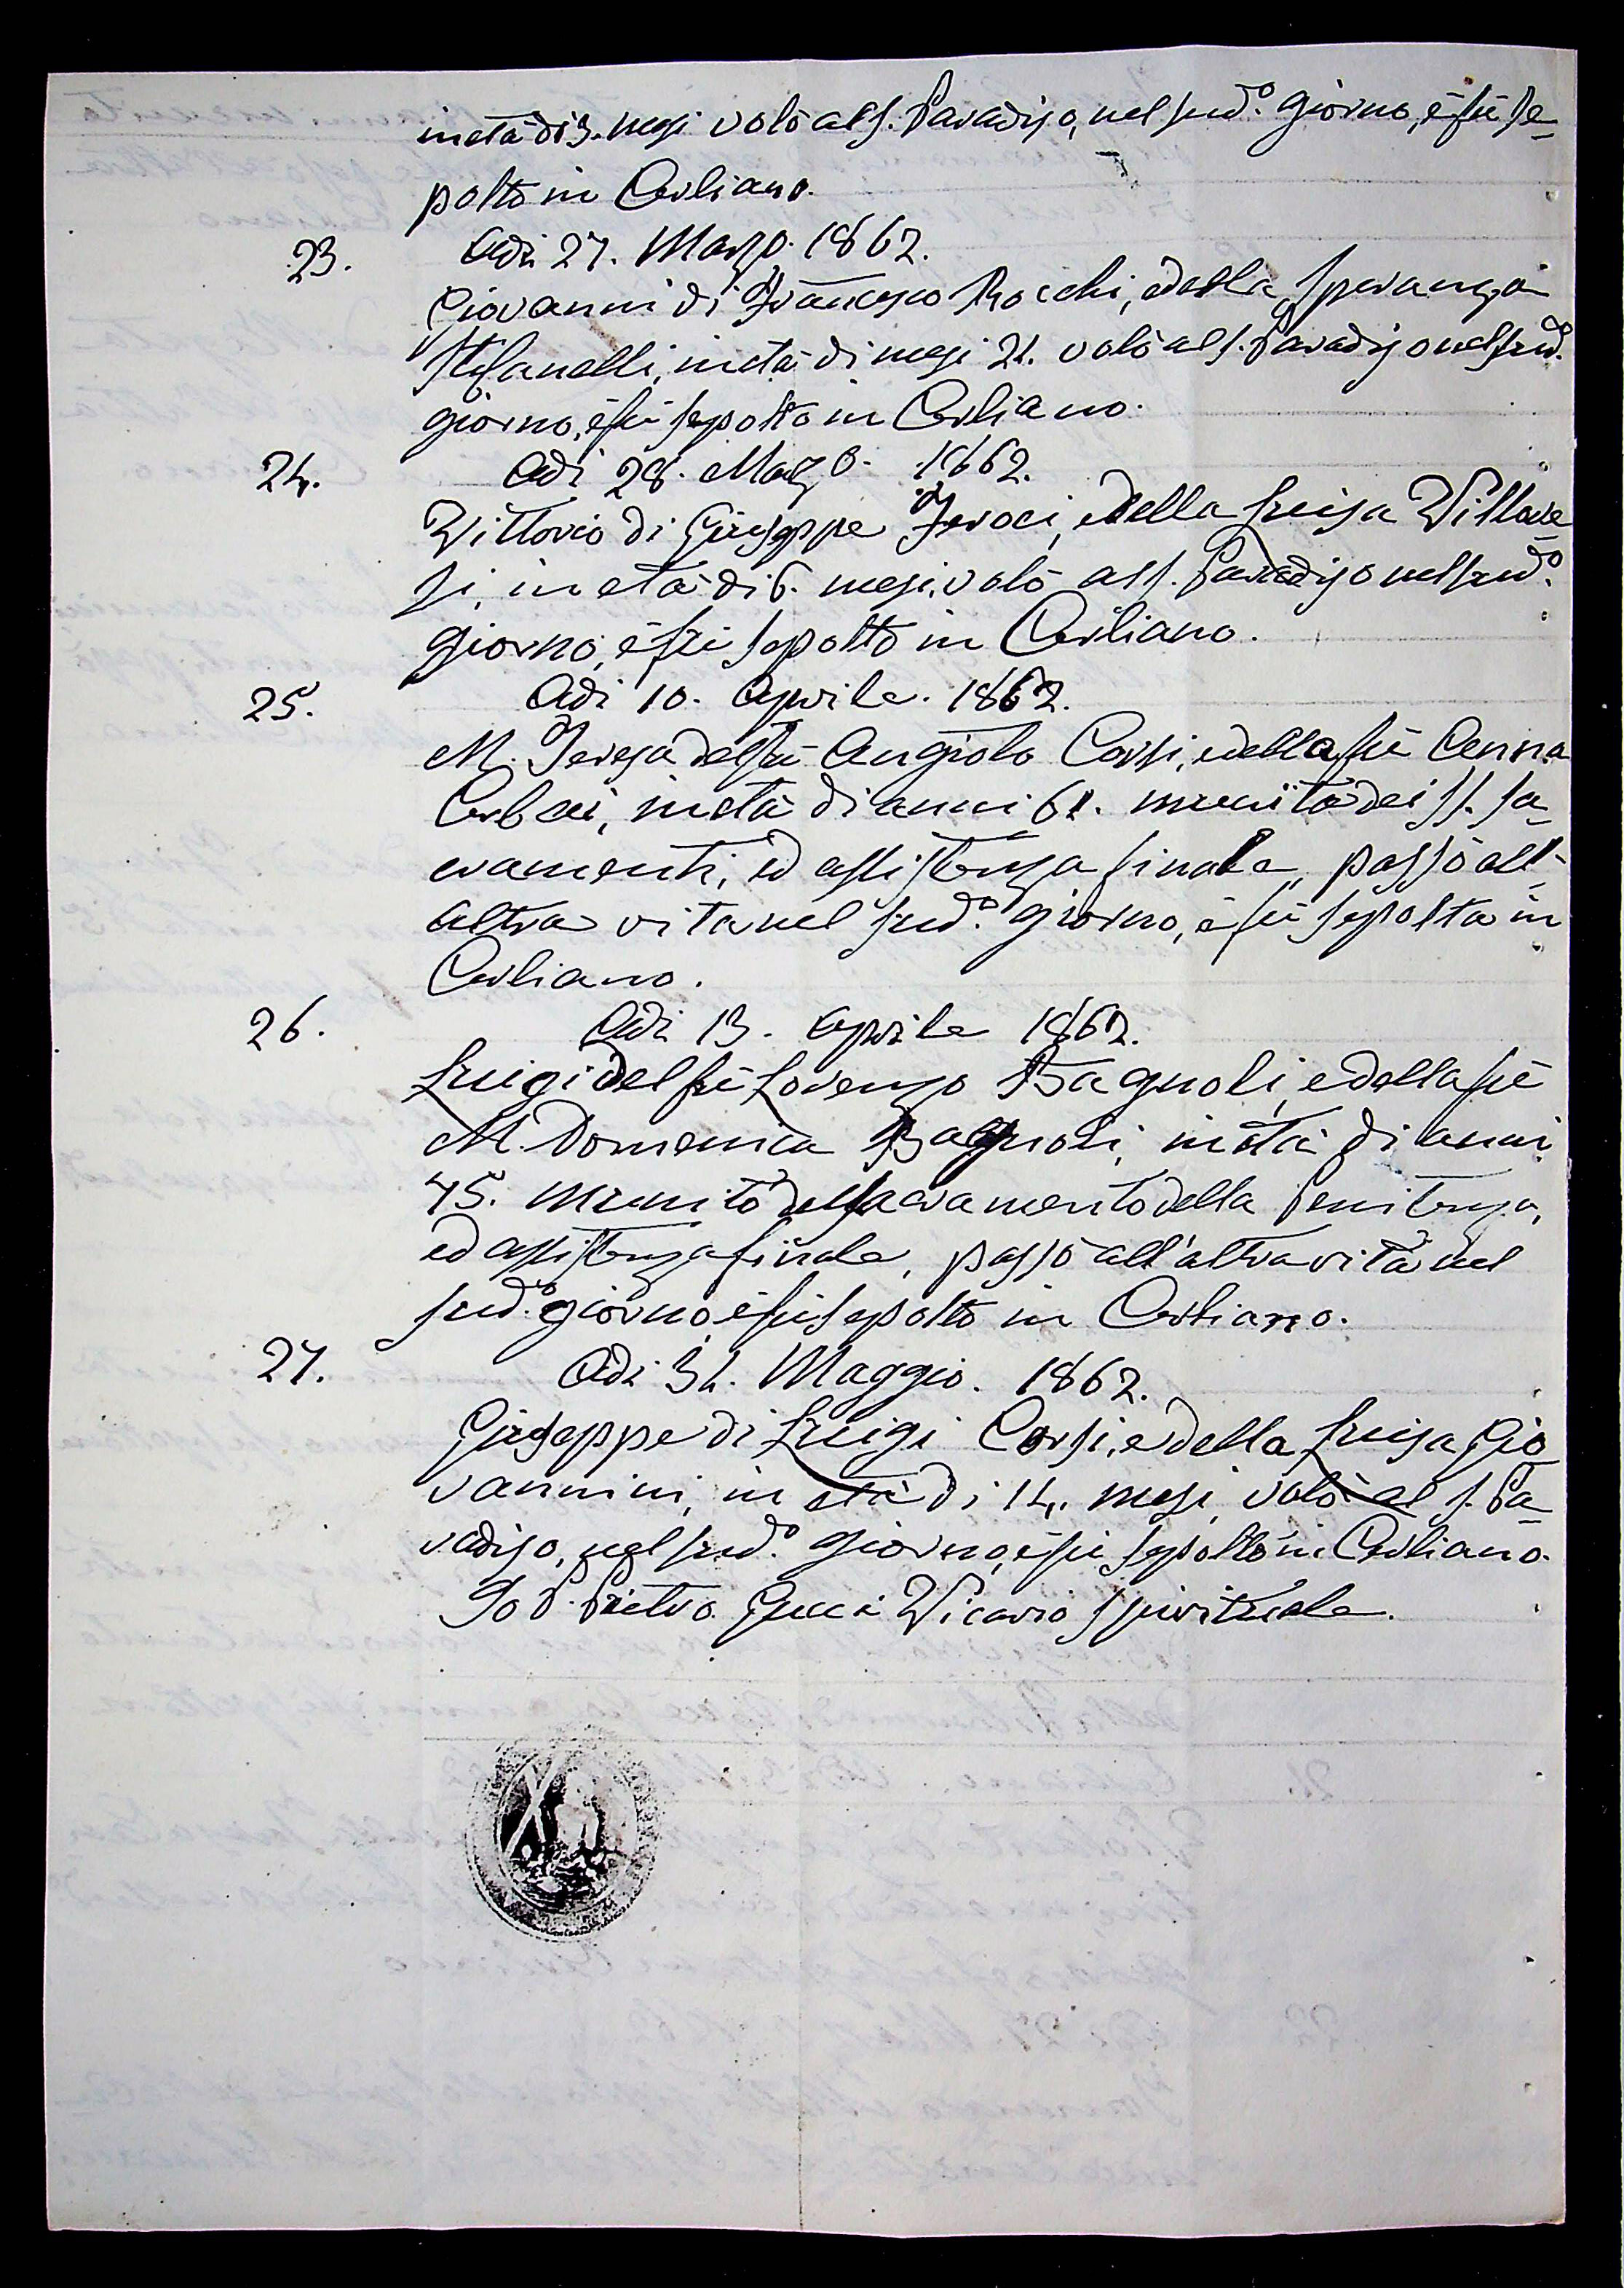 in età di 3. mesi volò al S. Paradiso, nel sud.º giorno, e fù se-
polto in Cerliano.
23. Adi 27. Marzo. 1862.
Giovanni di Francesco Rocchi, e della Speranza
Stefanelli, in età di mesi 21. volò al S. Paradiso nel sud.º
giorno, e fù sepolto in Cerliano.
24. Adi 28. Marzo. 1862.
Vittorio di Giuseppe Feroci, e della Luisa Villore-
si, in età di 6. mesi, volò al S. Paradiso nel sud.º
giorno, e fù sepolto in Cerliano.
25. Adi 10. Aprile. 1862.
M. Teresa del fù Angiolo Corsi, e della fù Anna
Cerbai, in età di anni 61. munita dei SS. Sa-
cramenti, ed assistenza finale, passò all-
altra vita nel sud.º giorno, e fù sepolta in
Cerliano.
26. Adi 13. Aprile 1862.
Luigi del fù Lorenzo Bagnoli, e della fù
M. Domenica Bagnoli, in età di anni
45. munito del Sacramento della Penitenza,
ed assistenza finale, passò all'altra vita nel
sud.º giorno e fù sepolto in Cerliano.
27. Adi 31. Maggio. 1862.
Giuseppe di Luigi Corsi, e della Luisa Gio-
vannini, in età di 14. mesi, volò al S. Pa-
radiso, nel sud.º giorno, e fù sepolto in Cerliano.
Io P. Pietro Vicario Spirituale.